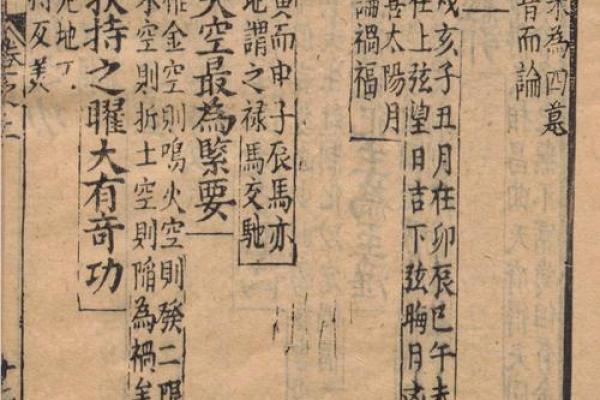 未為四墓
而論
戌亥子丑月在卯辰巳午未
在上弦望日吉下弦晦月凶
喜太陽月
論禍福
寅而申子辰馬亦
地謂之禄馬交馳
天空最為緊要
惟金空則鳴火空則發二限
木空則折土空則陷為禍矣
扶持之曜大有竒功
地
反美
卷之